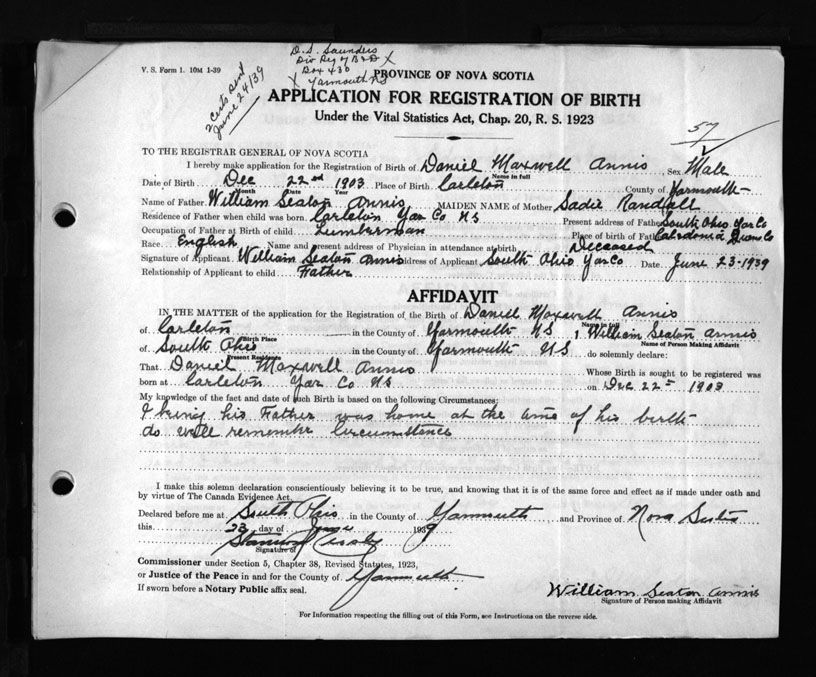 D. S. Saunders
V. S. Form 1. 10M 1-39
Div Reg of B & D X
Box 430
X Yarmouth NS
PROVINCE OF NOVA SCOTIA
sent
June 24/39
APPLICATION FOR REGISTRATION OF BIRTH
Under the Vital Statistics Act, Chap. 20, R. S. 1923
57
TO THE REGISTRAR GENERAL OF NOVA SCOTIA
I hereby make application for the Registration of Birth of Daniel Maxwell Annis Sex Male
Name in full
Date of Birth Dec 22nd 1903 Place of Birth Carleton County of Yarmouth
Month Date Year
Name of Father William Seaton Annis MAIDEN NAME of Mother Sadie Randall
Residence of Father when child was born Carleton Yar Co NS Present address of Father South Ohio Yar Co
Occupation of Father at Birth of child Lumberman Place of birth of Father Caledonia Queens Co
Race English Name and present address of Physician in attendance at birth Deceased
Signature of Applicant William Seaton Annis Address of Applicant South Ohio Yar Co Date June 23-1939
Relationship of Applicant to child Father
AFFIDAVIT
IN THE MATTER of the application for the Registration of the Birth of Daniel Maxwell Annis
Name in full
of Carleton in the County of Yarmouth NS I William Seaton Annis
Birth Place Name of Person Making Affidavit
of South Ohio in the County of Yarmouth NS do solemnly declare:
Present Residence
That Daniel Maxwell Annis Whose Birth is sought to be registered was
born at Carleton Yar Co NS on Dec 22nd 1903
My knowledge of the fact and date of such Birth is based on the following Circumstances:
I being his Father was home at the time of his birth
do well remember circumstance
I make this solemn declaration conscientiously believing it to be true, and knowing that it is of the same force and effect as if made under oath and
by virtue of The Canada Evidence Act.
Declared before me at South Ohio in the County of Yarmouth and Province of Nova Scotia
this 23 day of June 1939
Signature of
Commissioner under Section 5, Chapter 38, Revised Statutes, 1923,
or Justice of the Peace in and for the County of Yarmouth
If sworn before a Notary Public affix seal.
William Seaton Annis
Signature of Person making Affidavit
For Information respecting the filling out of this Form, see Instructions on the reverse side.